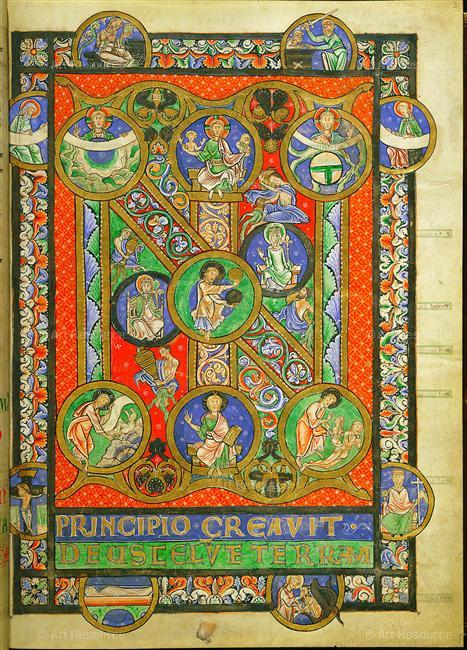 IN
PRINCIPIO·CREAVIT
DEUS CELV E TERRAM
© Art Resource
© Art Resource